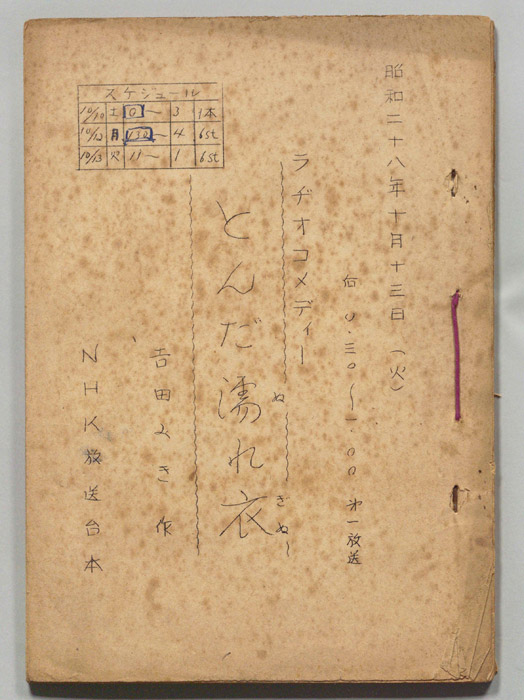 昭和二十八年十月十三日（火）
后〇・三〇〜一・〇〇 第一放送
ラヂオコメディー
とんだ濡れ衣
ぬ ぎぬ
吉田みき 作
NHK放送台本
スケジュール
10/10 土 0〜 3 1本
10/12 月 130〜 4 6st
10/13 火 11〜 1 6st